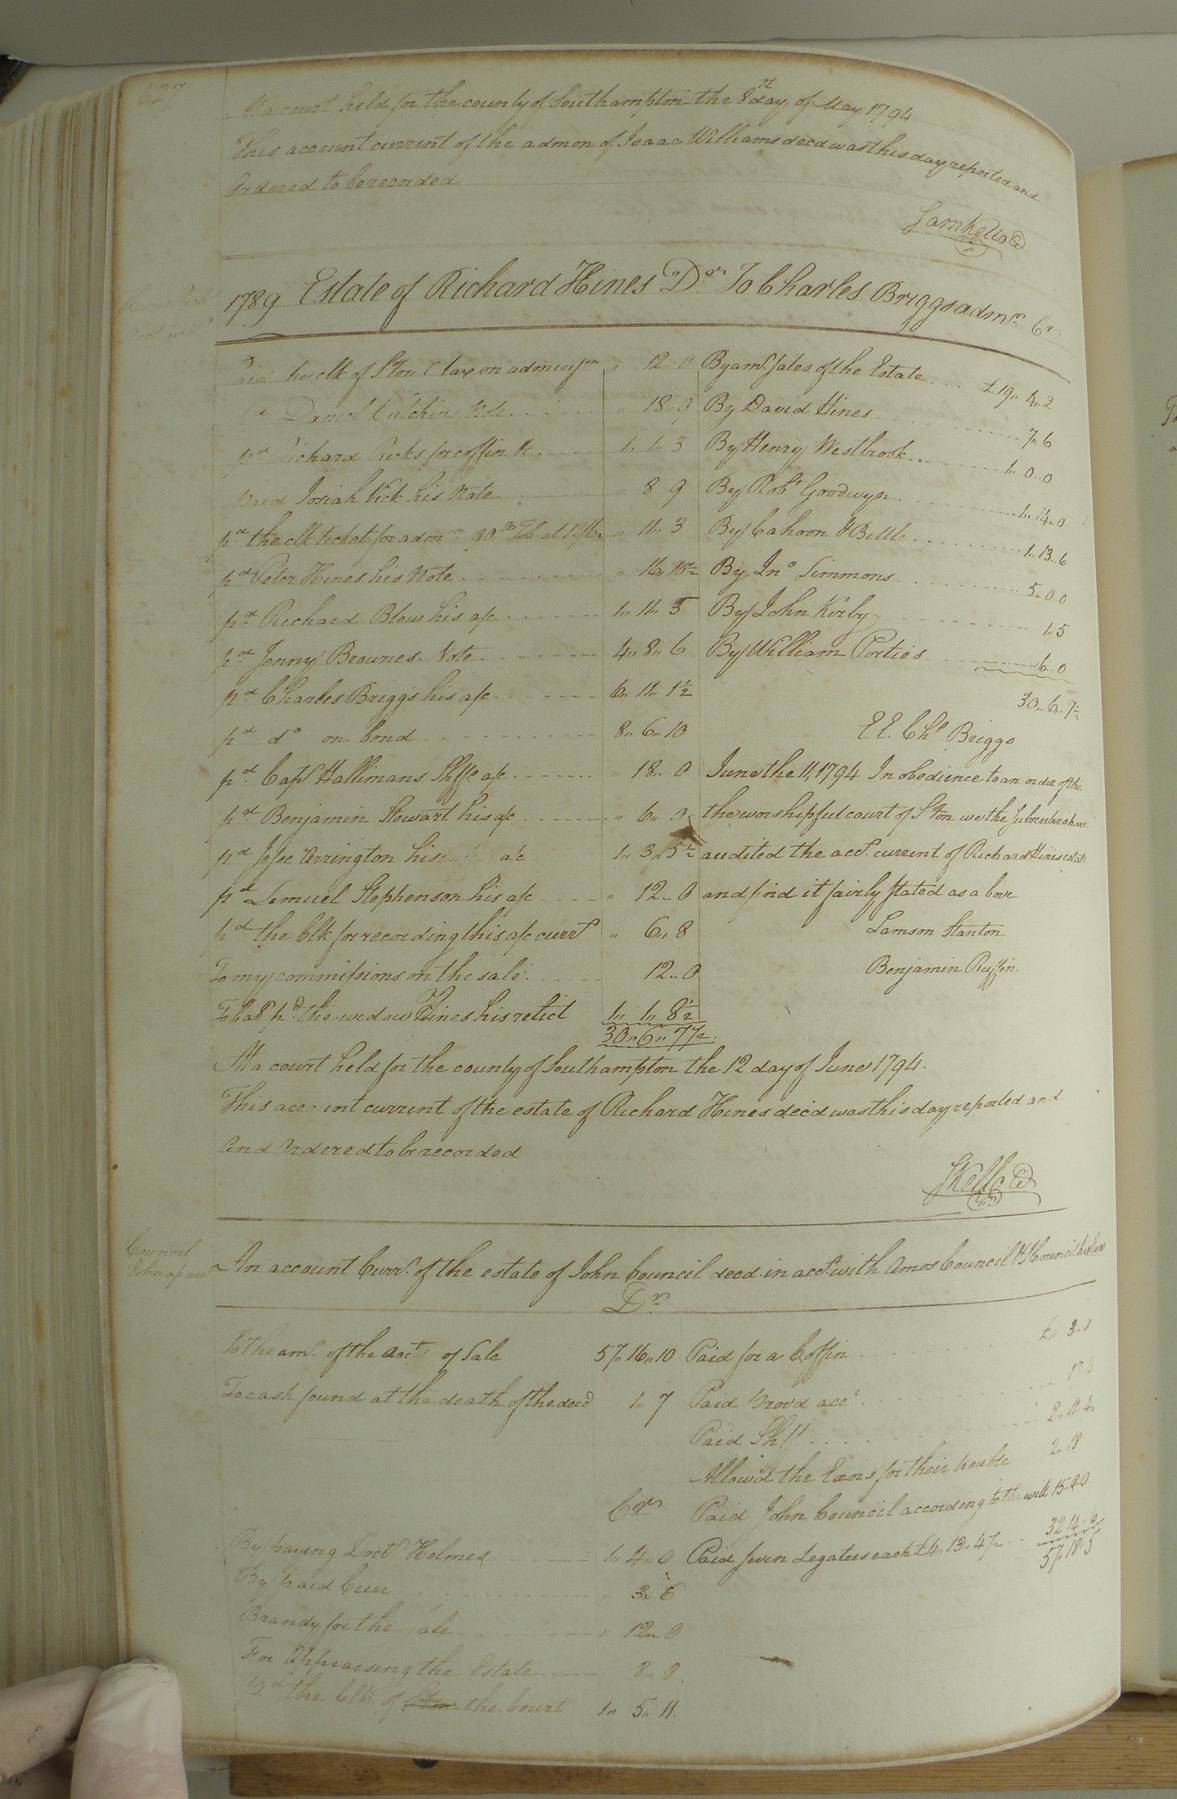 627
At a court held for the county of Southampton the 8th day of May 1794
This account current of the admon of Isaac Williams decd was this day reported and
Ordered to be recorded
Sam Kello
1789 Estate of Richard Hines Dr. To Charles Briggs admr. Cr
Paid the clk of Ston tax on
12 0
Daniel his Note
18 9
pd Richard Ricks for coffin &c
1 1 3
Paid Josiah his Note
8 9
pd the clk ticket for admn
11 3
pd Peter Hines his Note
16 10½
pd Richard Blow his a/c
1 11 5
pd Jenny Brownes Note
4 8 6
pd Charles Briggs his a/c
6 11 1½
pd do on bond
8 6 10
pd Capt Hallimans Shff a/c
18 0
pd Benjamin Stewart his a/c
6 0
pd Jesse Arrington his a/c
1 3 5½
pd Lemuel Stephenson his a/c
12 0
pd the Clk for recording this a/c currt
6 8
To my commissions on the sale
12 0
To bal pd the widow Hines his relict
1 1 8½
30 6 7½
By amt. sales of the Estate £19 4 2
By David Hines 7 6
By Henry Westbrook 1 0 0
By Robt Goodwyn 1 14 0
By Cahoon & Bell 1 13 6
By Jno Simmons 5 0 0
By John Kirby 1 5
By William Porties 6 0
30 6 7½
E E. Chs Briggs
June the 11, 1794 In obedience to an order of the
the worshipful court of Ston we the Subscribers have
audited the acct. current of Richard Hines estate
and find it fairly stated as above
Lamson Stanton
Benjamin Ruffin
At a court held for the county of Southampton the 12 day of June 1794.
This account current of the estate of Richard Hines decd was this day reported and
And Ordered to be recorded
S Kello
Council
John
An account Currt. of the estate of John Council decd. in acct. with Amos Council & J Council his
Dr
To the amt. of the acct of Sale 57 16 10
To cash found at the death of the decd 1 7
Paid for a Coffin
Paid Proved acct
Paid Shff 2 10 4
Allow'd the Exors for their trouble 2 18
Crs
Paid John Council according to the will 15 0 0
By paying Doct Holmes 1 4 0
Paid seven Legatees each £4 13 4 32
57 18 5
By paid 3 6
Brandy for the Sale 12 0
For Appraising the Estate 8 8
pd the Clk of the Court 1 5 11